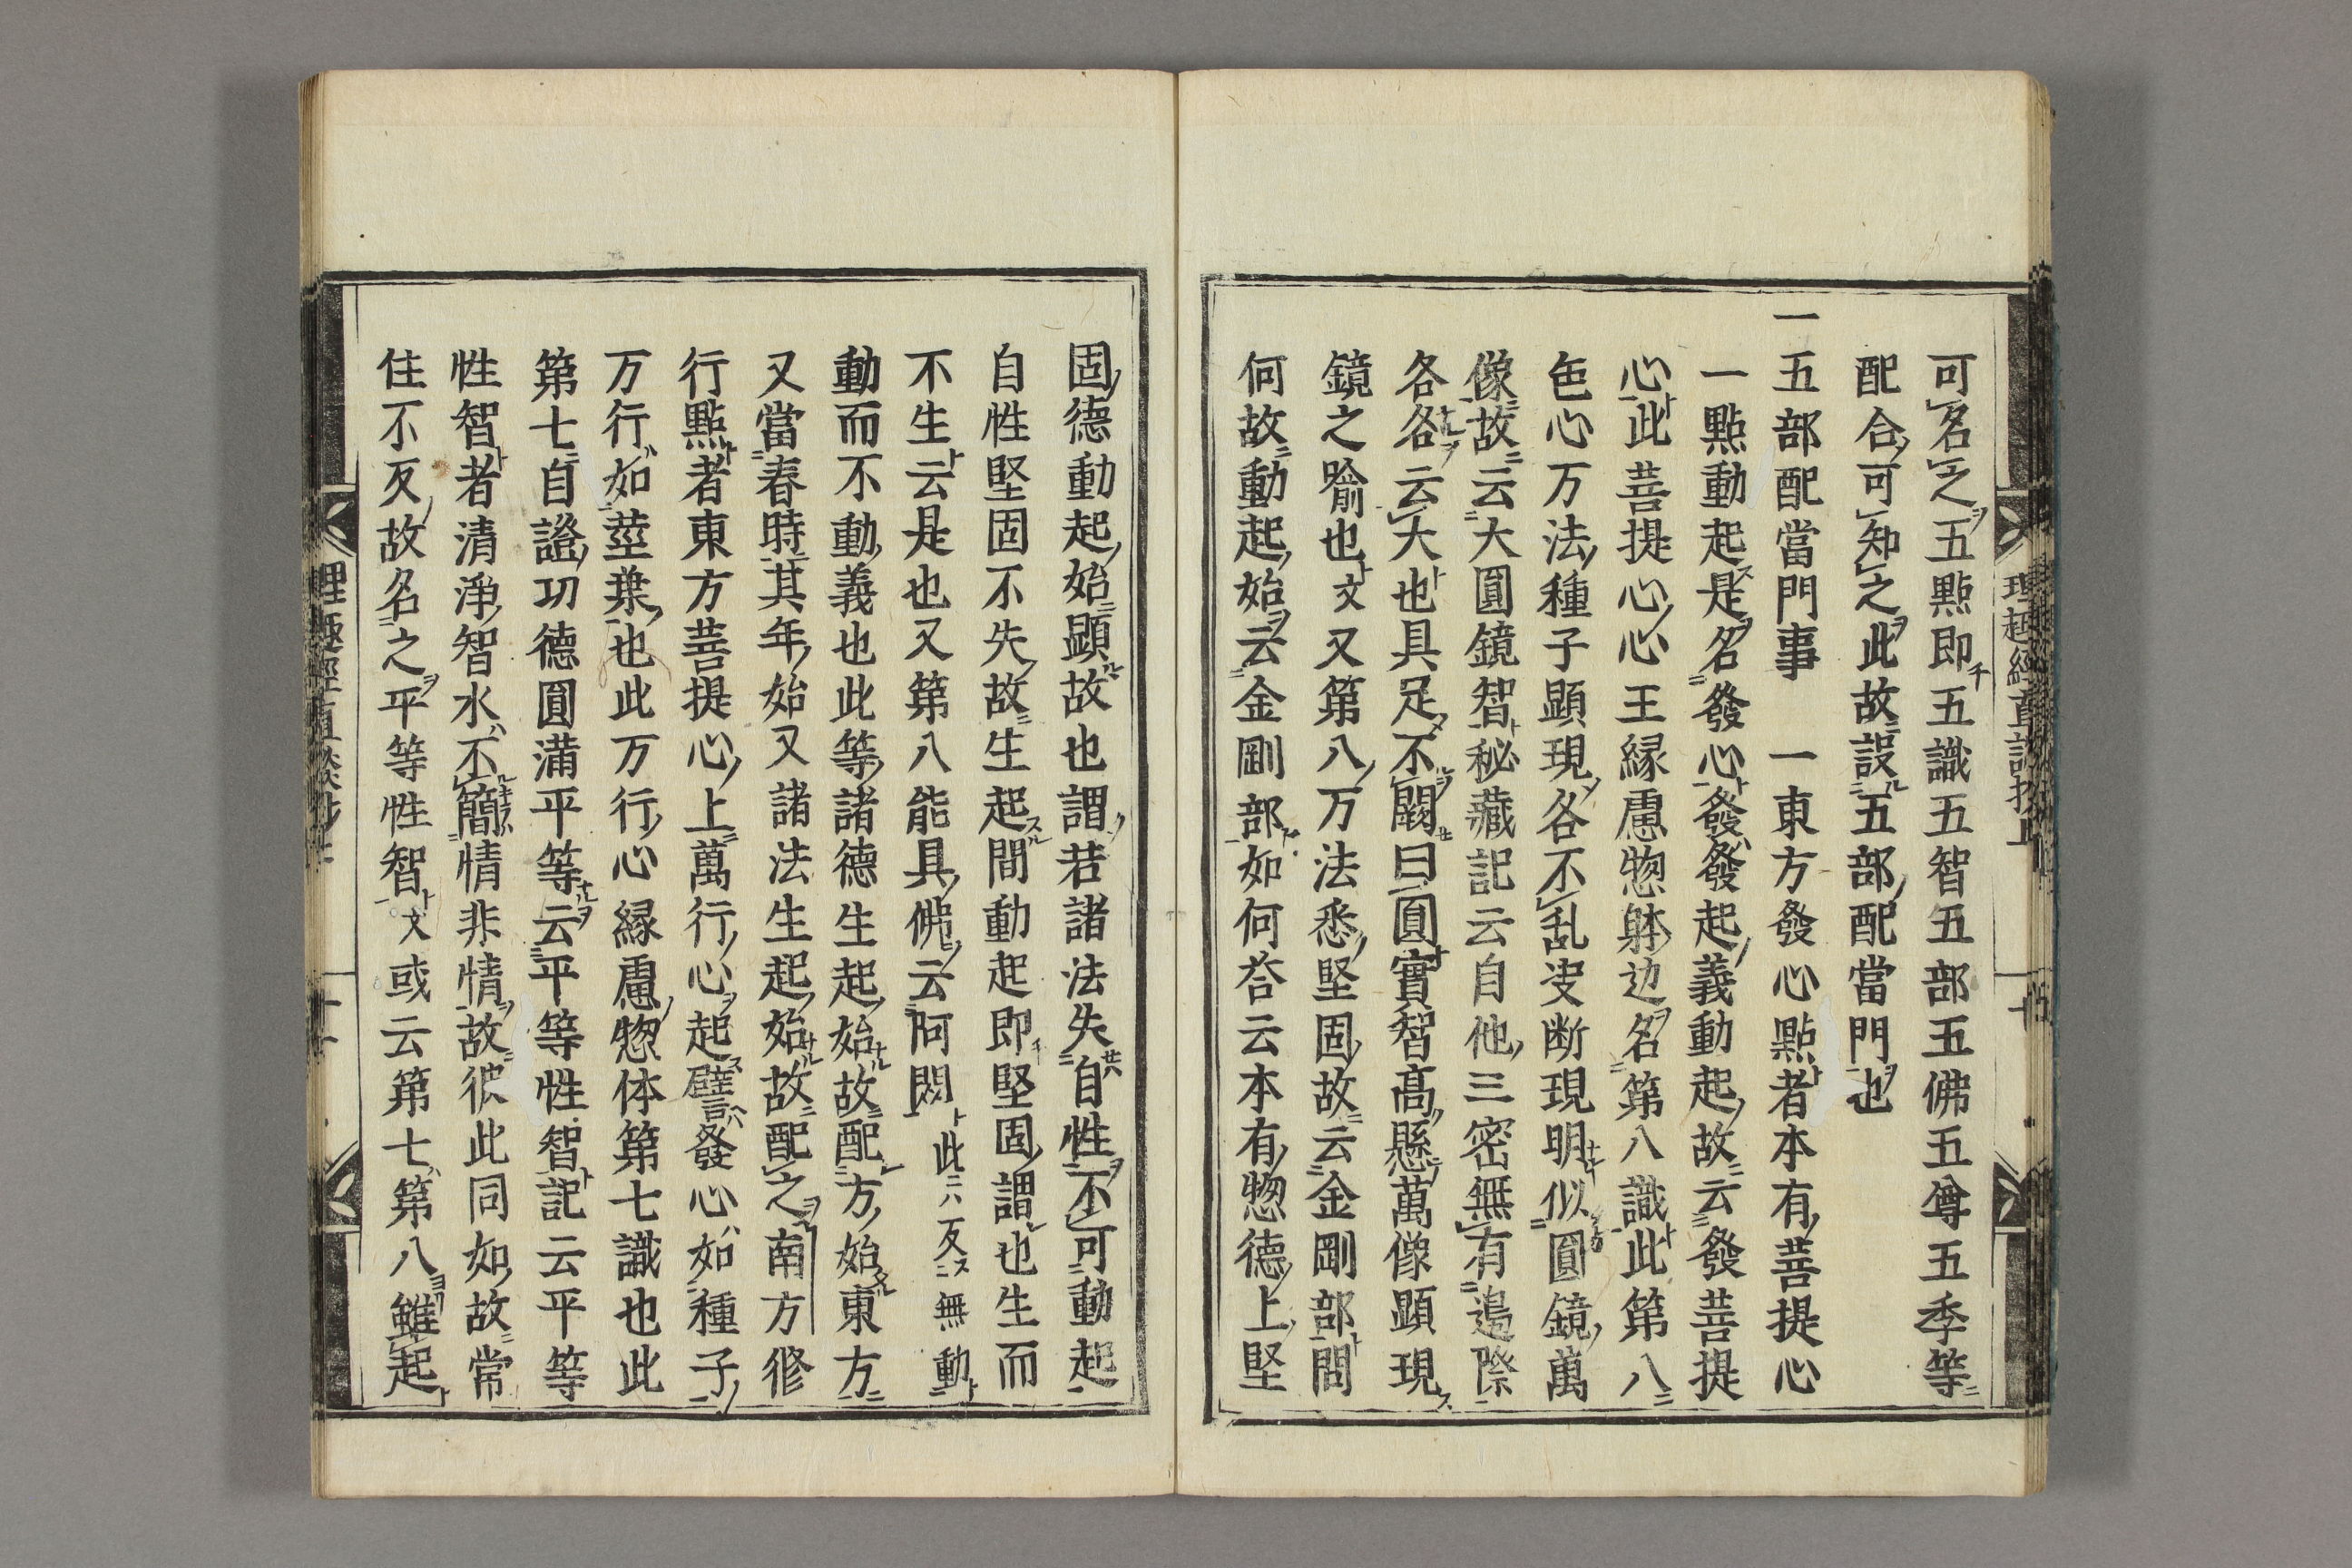 可名之五點即五識五智五部五佛五尊五季等
配合可知之此故設五部配當門也
一五部配當門事 一東方發心點者本有菩提心
一點動起是名發心發發起義動起故云發菩提
心此菩提心心王縁慮惣躰边名第八識此第八
色心万法種子顕現各不乱决断現明似圓鏡萬
像故云大圓鏡智秘藏記云自他三密無有邊際
各各云大也具足不闕曰圓實智髙懸萬像顕現
鏡之喩也文又第八万法悉堅固故云金剛部問
何故動起始云金剛部如何荅云本有惣德上堅
固德動起始顕故也謂若諸法失自性不可動起
自性堅固不失故生起間動起即堅固謂也生而
不生云是也又第八能具佛云阿閦此ニハ反無動
動而不動義也此等諸德生起始故配方始東方
又當春時其年始又諸法生起始故配之南方修
行點者東方菩提心上萬行心起譬發心如種子
万行如莖葉也此万行心縁慮惣体第七識也此
第七自證功德圓満平等云平等性智記云平等
性智者清淨智水不簡情非情故彼此同如故常
住不反故名之平等性智文或云第七第八雖起